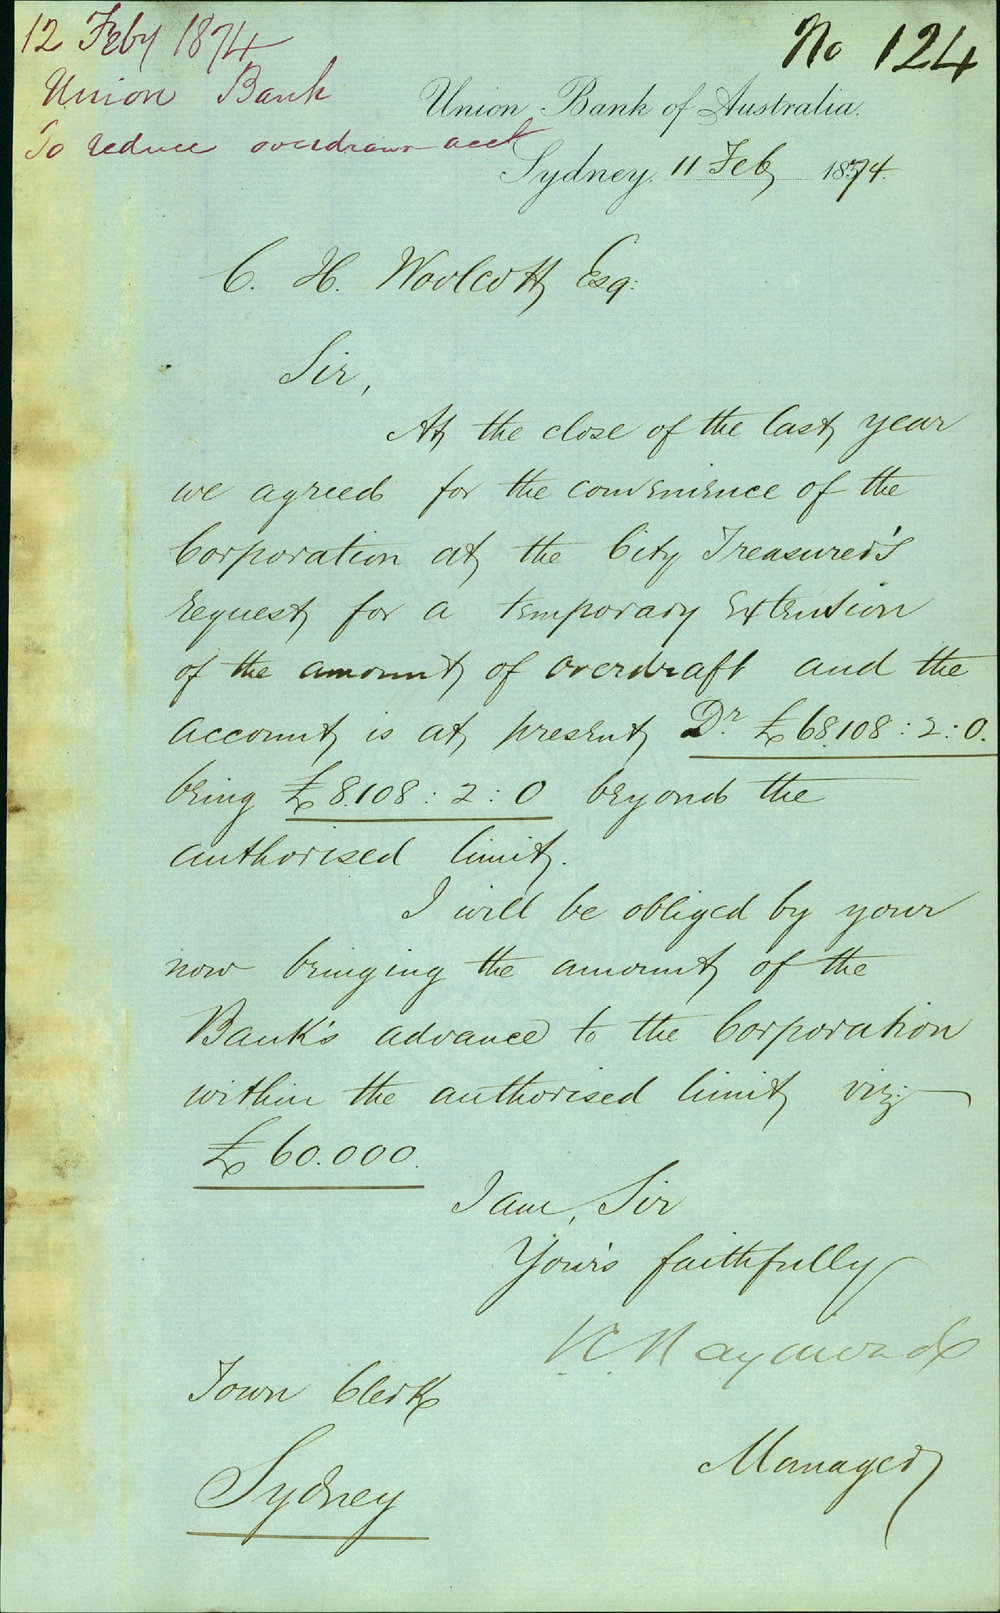 12 Feby 1874
Union Bank
To reduce overdrawn acct
No 124
Union Bank of Australia.
Sydney. 11 Feb 1874.
C. H. Woolcott Esq:
Sir,
At the close of the last year
we agreed for the convenience of the
Corporation at the City Treasurer's
request for a temporary extension
of the amount of overdraft and the
account is at present Dr. £68,108:2:0.
being £8.108:2:0 beyond the
authorised limit.
I will be obliged by your
now bringing the amount of the
Bank's advance to the Corporation
within the authorised limit viz:
£60.000.
I am, Sir
Your's faithfully
Manager
Town Clerk
Sydney